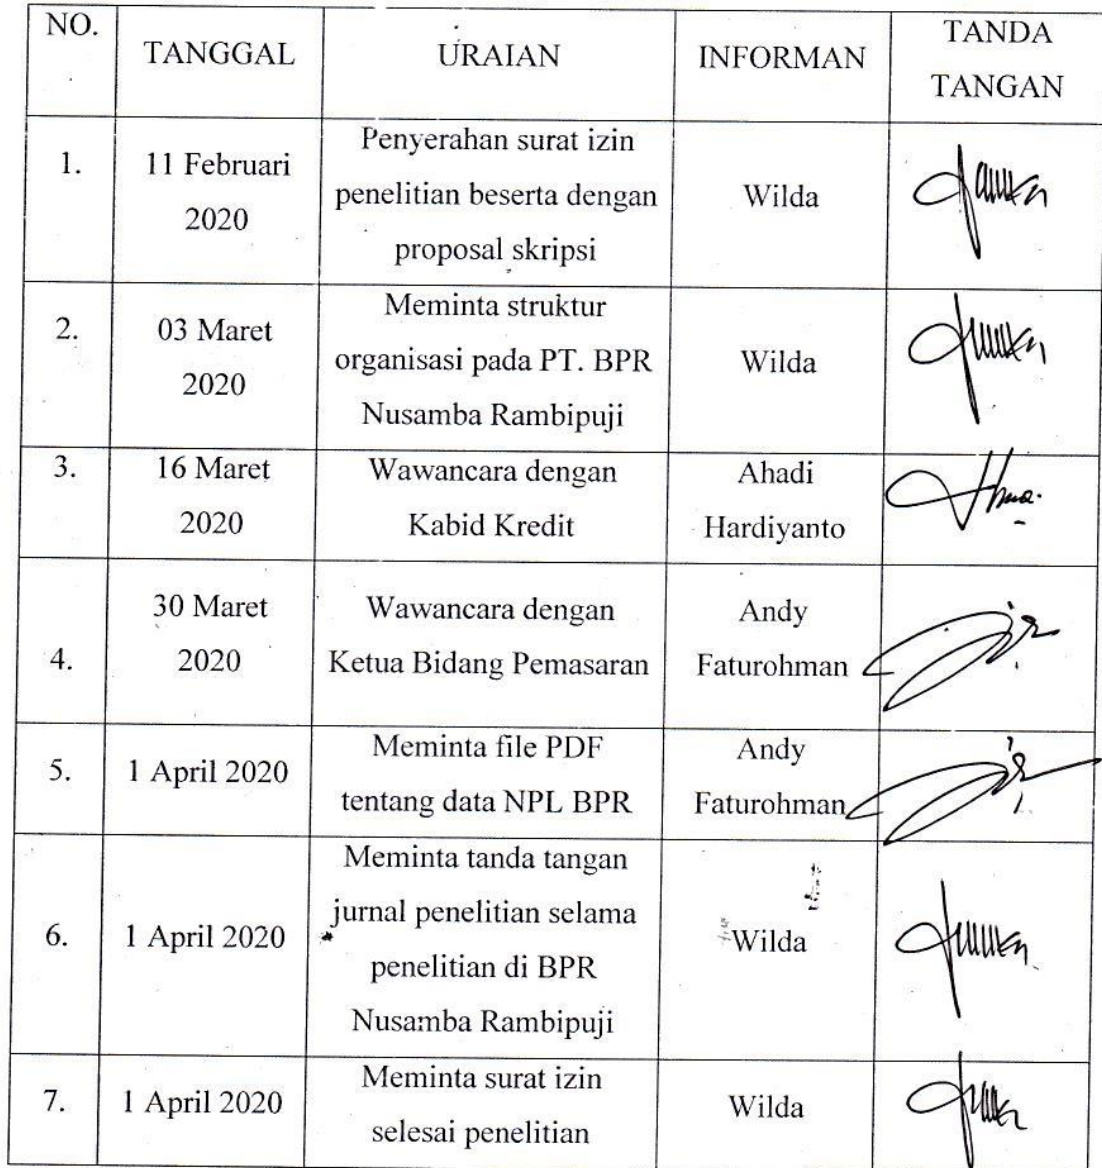 NO.
TANGGAL
URAIAN
INFORMAN
TANDA
TANGAN
1.
11 Februari
2020
Penyerahan surat izin
penelitian beserta dengan
proposal skripsi
Wilda
2.
03 Maret
2020
Meminta struktur
organisasi pada PT. BPR
Nusamba Rambipuji
Wilda
3.
16 Maret
2020
Wawancara dengan
Kabid Kredit
Ahadi
Hardiyanto
4.
30 Maret
2020
Wawancara dengan
Ketua Bidang Pemasaran
Andy
Faturohman
5.
1 April 2020
Meminta file PDF
tentang data NPL BPR
Andy
Faturohman
6.
1 April 2020
Meminta tanda tangan
jurnal penelitian selama
penelitian di BPR
Nusamba Rambipuji
Wilda
7.
1 April 2020
Meminta surat izin
selesai penelitian
Wilda